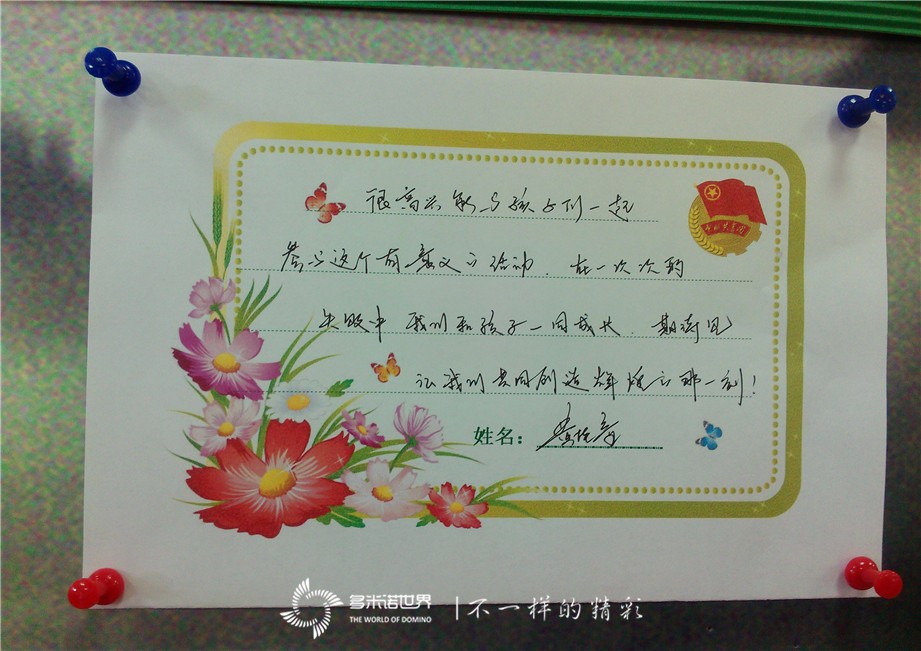 很高兴能与孩子们一起
参与这个有意义的活动．在一次次的
失败中我们和孩子一同成长．期待见
证我们共同创造辉煌的那一刻！
姓名：
多米诺世界
THE WORLD OF DOMINO
不一样的精彩